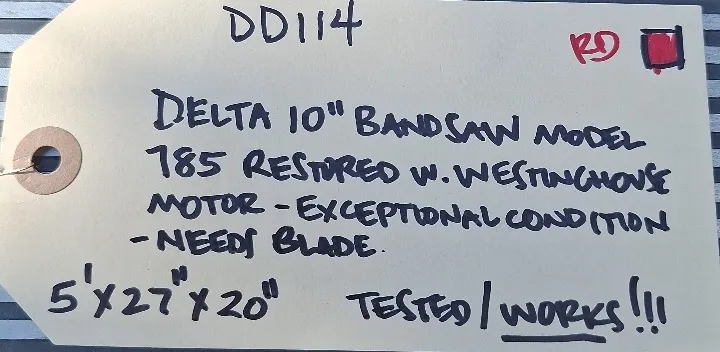 DD114
RD
DELTA 10" BANDSAW MODEL
785 RESTORED W. WESTINGHOUSE
MOTOR - EXCEPTIONAL CONDITION
- NEEDS BLADE.
5'X27"X20" TESTED/WORKS!!!